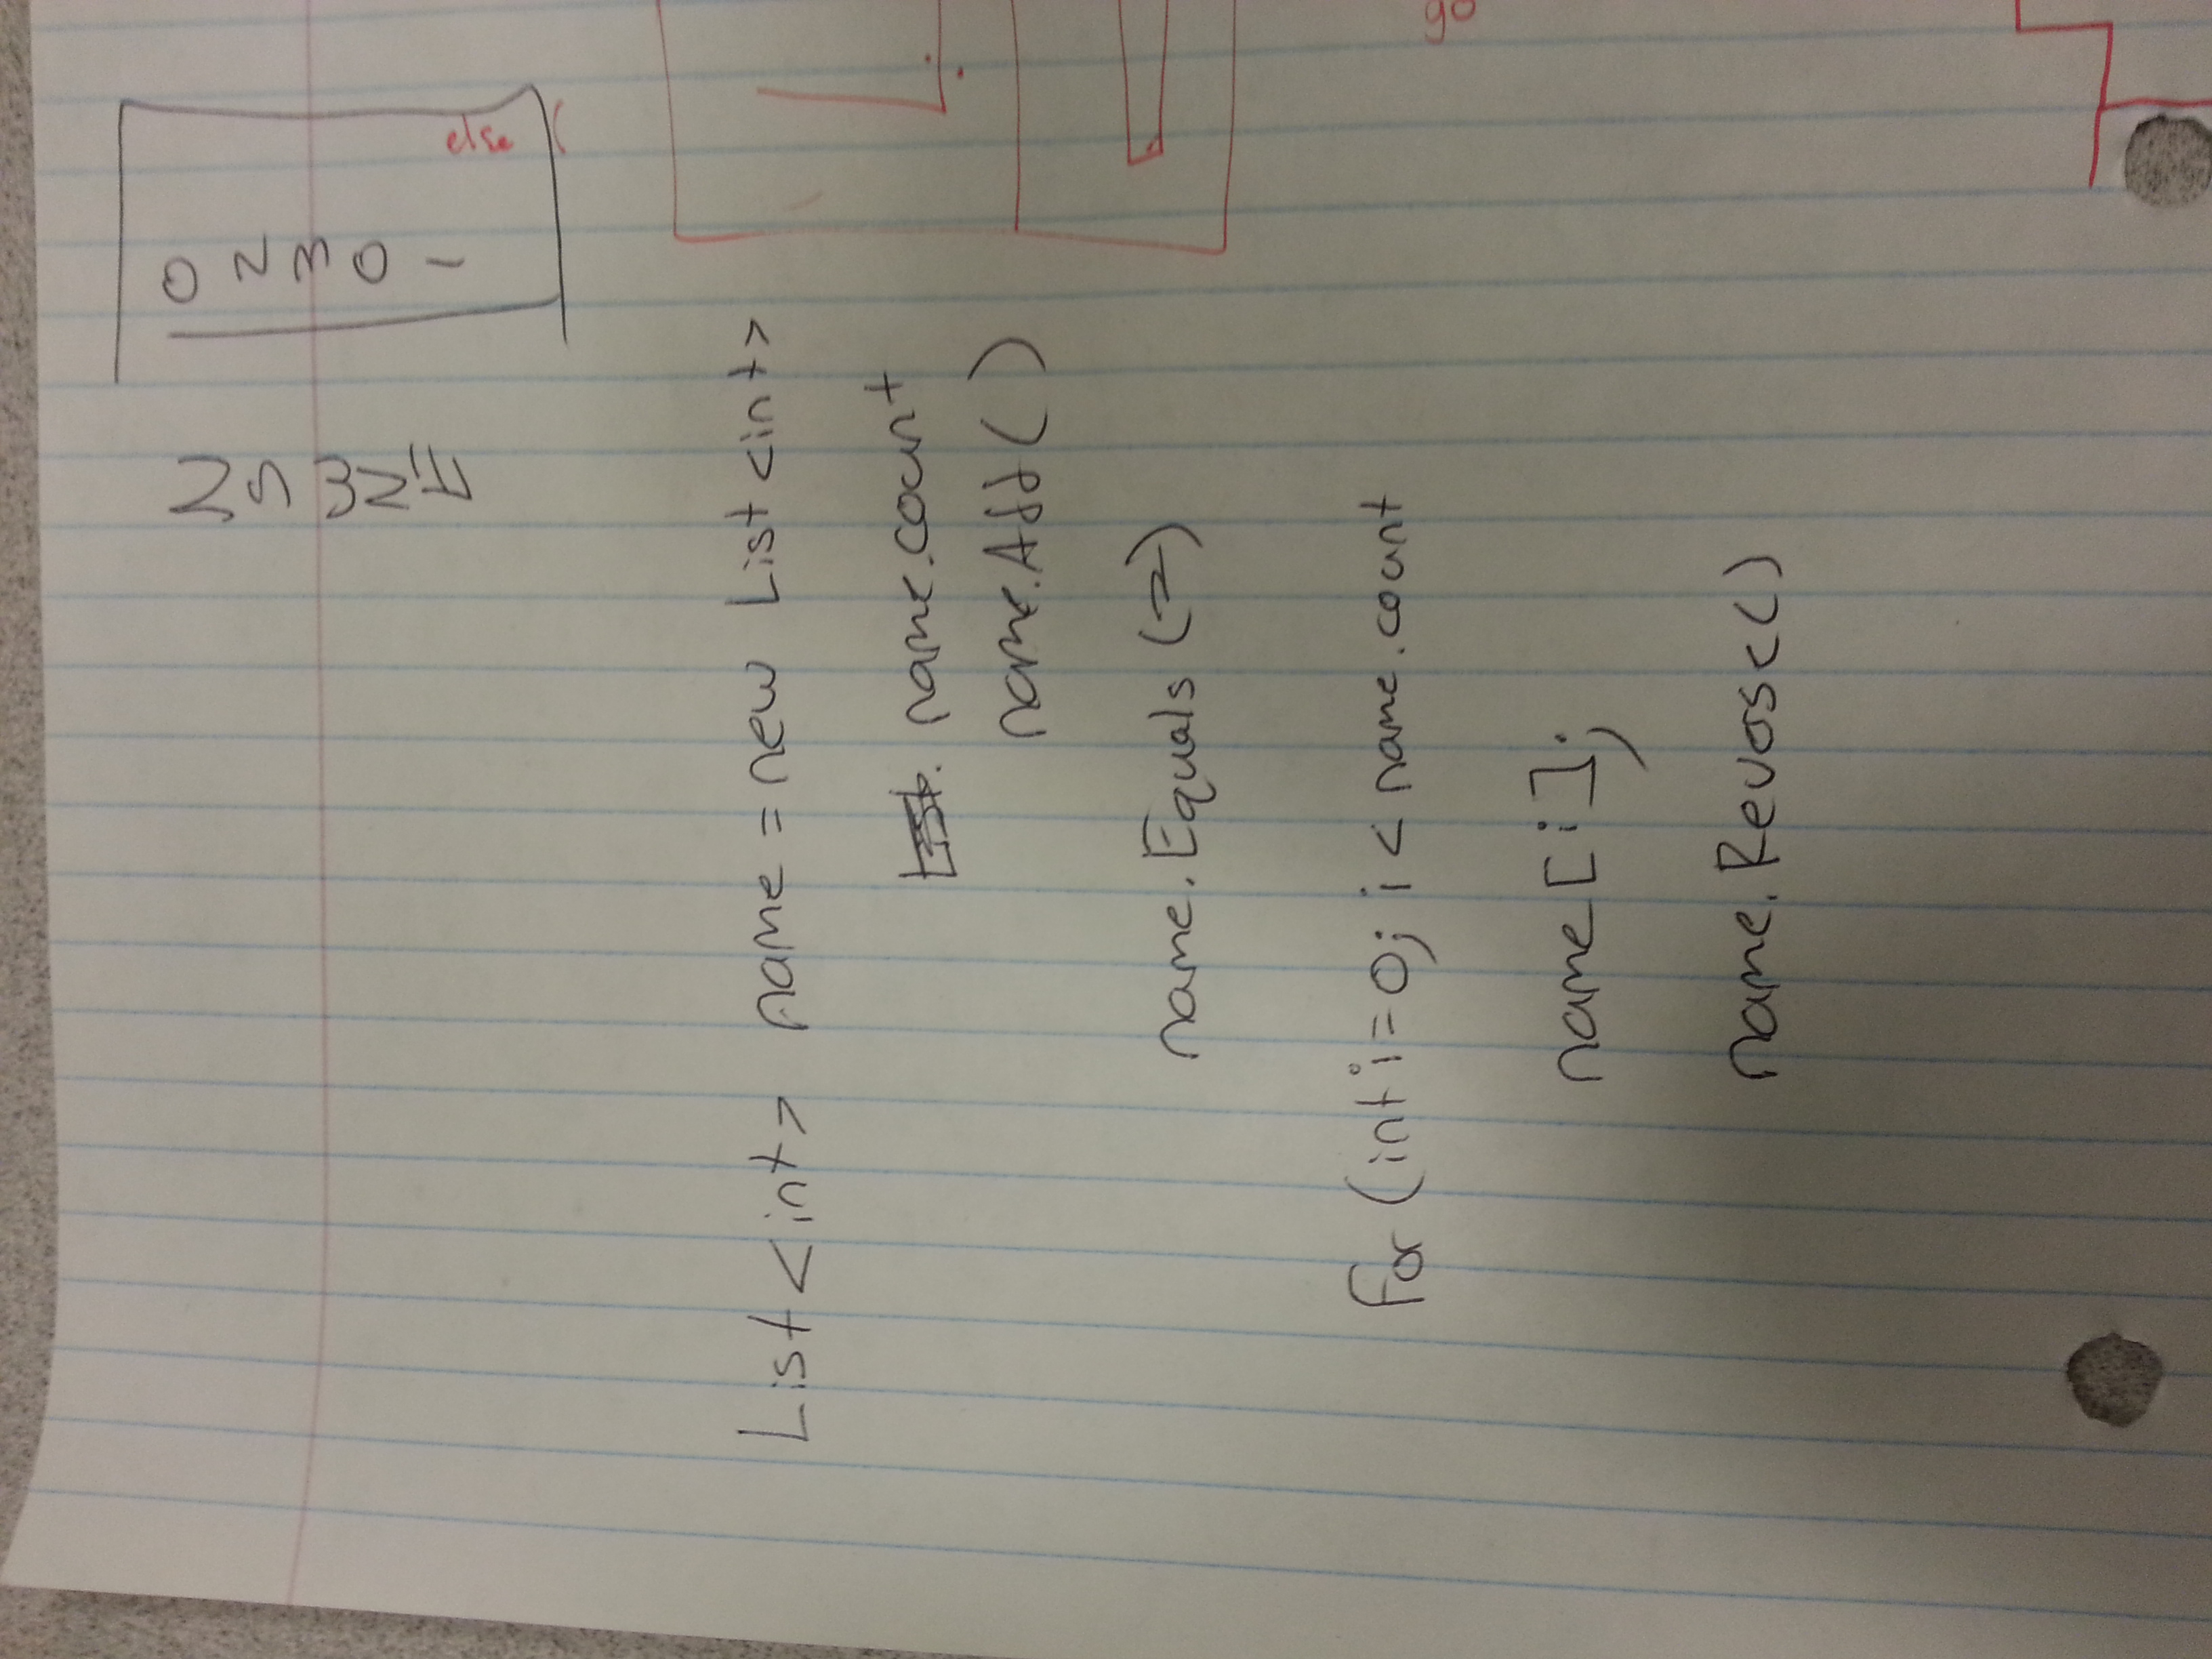 else
0
2
3
0
1
List <int> name = new List <int>
name.count
name.Add( )
name.Equals (2)
for (int i = 0; i < name.count
name [i];
name.Reverse()
go